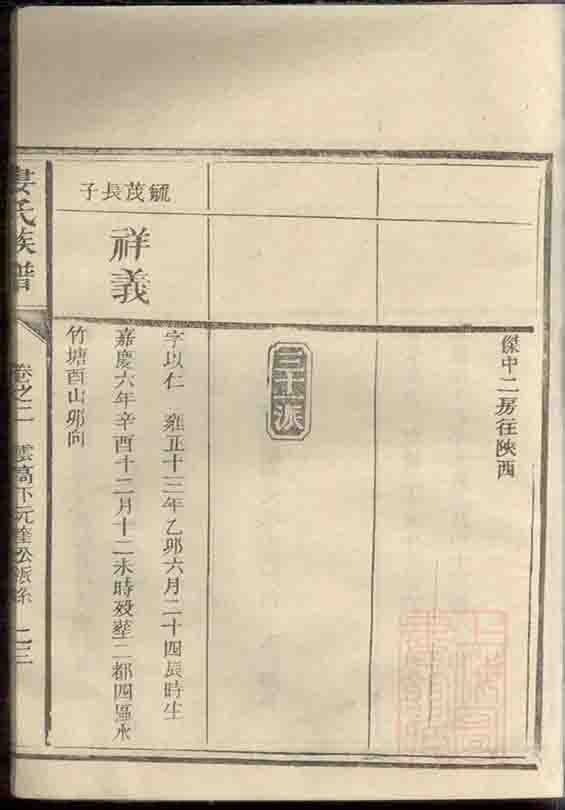 傑中二房往陝西
三十派
毓茂長子
祥義
字以仁 雍正十三年乙卯六月二十四辰時生
嘉慶六年辛酉十二月十二未時歿塟二都四區水
竹塘酉山卯向
婁氏族譜
卷之二 雲高下元達公派系